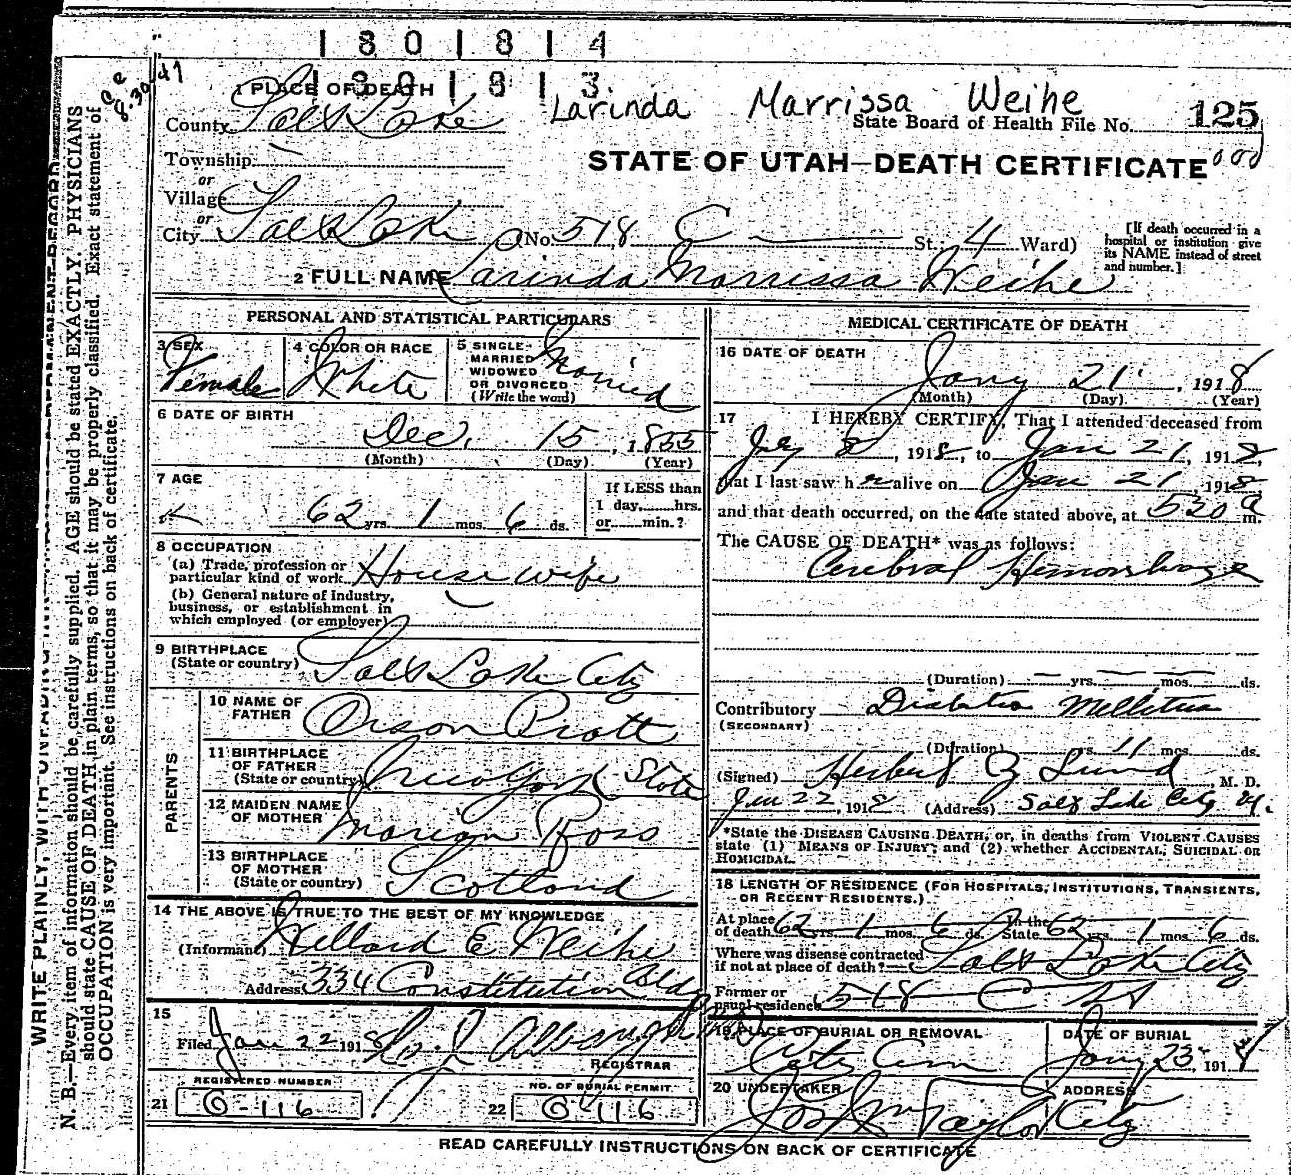 1 8 0 1 8 1 4
1 8 0 1 8 1 3
Larinda Marrissa Weihe
1 PLACE OF DEATH
County Salt Lake
State Board of Health File No. 125
Township
or
Village
or
STATE OF UTAH—DEATH CERTIFICATE
City Salt Lake (No. 518 C St. 4 Ward)
[If death occurred in a hospital or institution give its NAME instead of street and number.]
2 FULL NAME Larinda Marrissa Weihe
PERSONAL AND STATISTICAL PARTICULARS
3 SEX Female
4 COLOR OR RACE White
5 SINGLE- MARRIED WIDOWED OR DIVORCED (Write the word) Married
6 DATE OF BIRTH
Dec. 15, 1855
(Month) (Day) (Year)
7 AGE
62 yrs. 1 mos. 6 ds.
If LESS than 1 day, hrs. or min.?
8 OCCUPATION
(a) Trade, profession or particular kind of work House wife
(b) General nature of industry, business, or establishment in which employed (or employer)
9 BIRTHPLACE
(State or country) Salt Lake City
PARENTS
10 NAME OF FATHER Orson Pratt
11 BIRTHPLACE OF FATHER (State or country) New York State
12 MAIDEN NAME OF MOTHER Marian Ross
13 BIRTHPLACE OF MOTHER (State or country) Scotland
14 THE ABOVE IS TRUE TO THE BEST OF MY KNOWLEDGE
(Informant) Willard E Weihe
Address 334 Constitution Bldg
15
Filed Jan 22 1918
REGISTRAR
REGISTERED NUMBER
21 G-116
NO. OF BURIAL PERMIT
22 G-116
MEDICAL CERTIFICATE OF DEATH
16 DATE OF DEATH
Jany 21, 1918
(Month) (Day) (Year)
17 I HEREBY CERTIFY, That I attended deceased from
8, 1918, to Jan 21, 1918,
that I last saw her alive on Jan 21 1918
and that death occurred, on the date stated above, at 5 20 a m.
The CAUSE OF DEATH* was as follows:
Cerebral Hemorrhage
(Duration) yrs. mos. ds.
Contributory Diabetes Mellitus
(SECONDARY)
(Duration) yrs. 11 mos. ds.
(Signed) Herbert Z Lund M. D.
Jan 22, 1918 (Address) Salt Lake City U.
*State the DISEASE CAUSING DEATH, or, in deaths from VIOLENT CAUSES state (1) MEANS OF INJURY; and (2) whether ACCIDENTAL, SUICIDAL OR HOMICIDAL.
18 LENGTH OF RESIDENCE (FOR HOSPITALS, INSTITUTIONS, TRANSIENTS, OR RECENT RESIDENTS.)
At place of death 62 yrs. 1 mos. 6 ds. In the State 62 1 mos. 6 ds.
Where was disease contracted if not at place of death? Salt Lake City
Former or usual residence 518 C St
19 PLACE OF BURIAL OR REMOVAL City Cem
DATE OF BURIAL Jany 23, 1918
20 UNDERTAKER Jos Wm Taylor
ADDRESS City
READ CAREFULLY INSTRUCTIONS ON BACK OF CERTIFICATE
N. B.—Every item of information should be carefully supplied. AGE should be stated EXACTLY. PHYSICIANS
should state CAUSE OF DEATH in plain terms, so that it may be properly classified. Exact statement of
OCCUPATION is very important. See instructions on back of certificate.